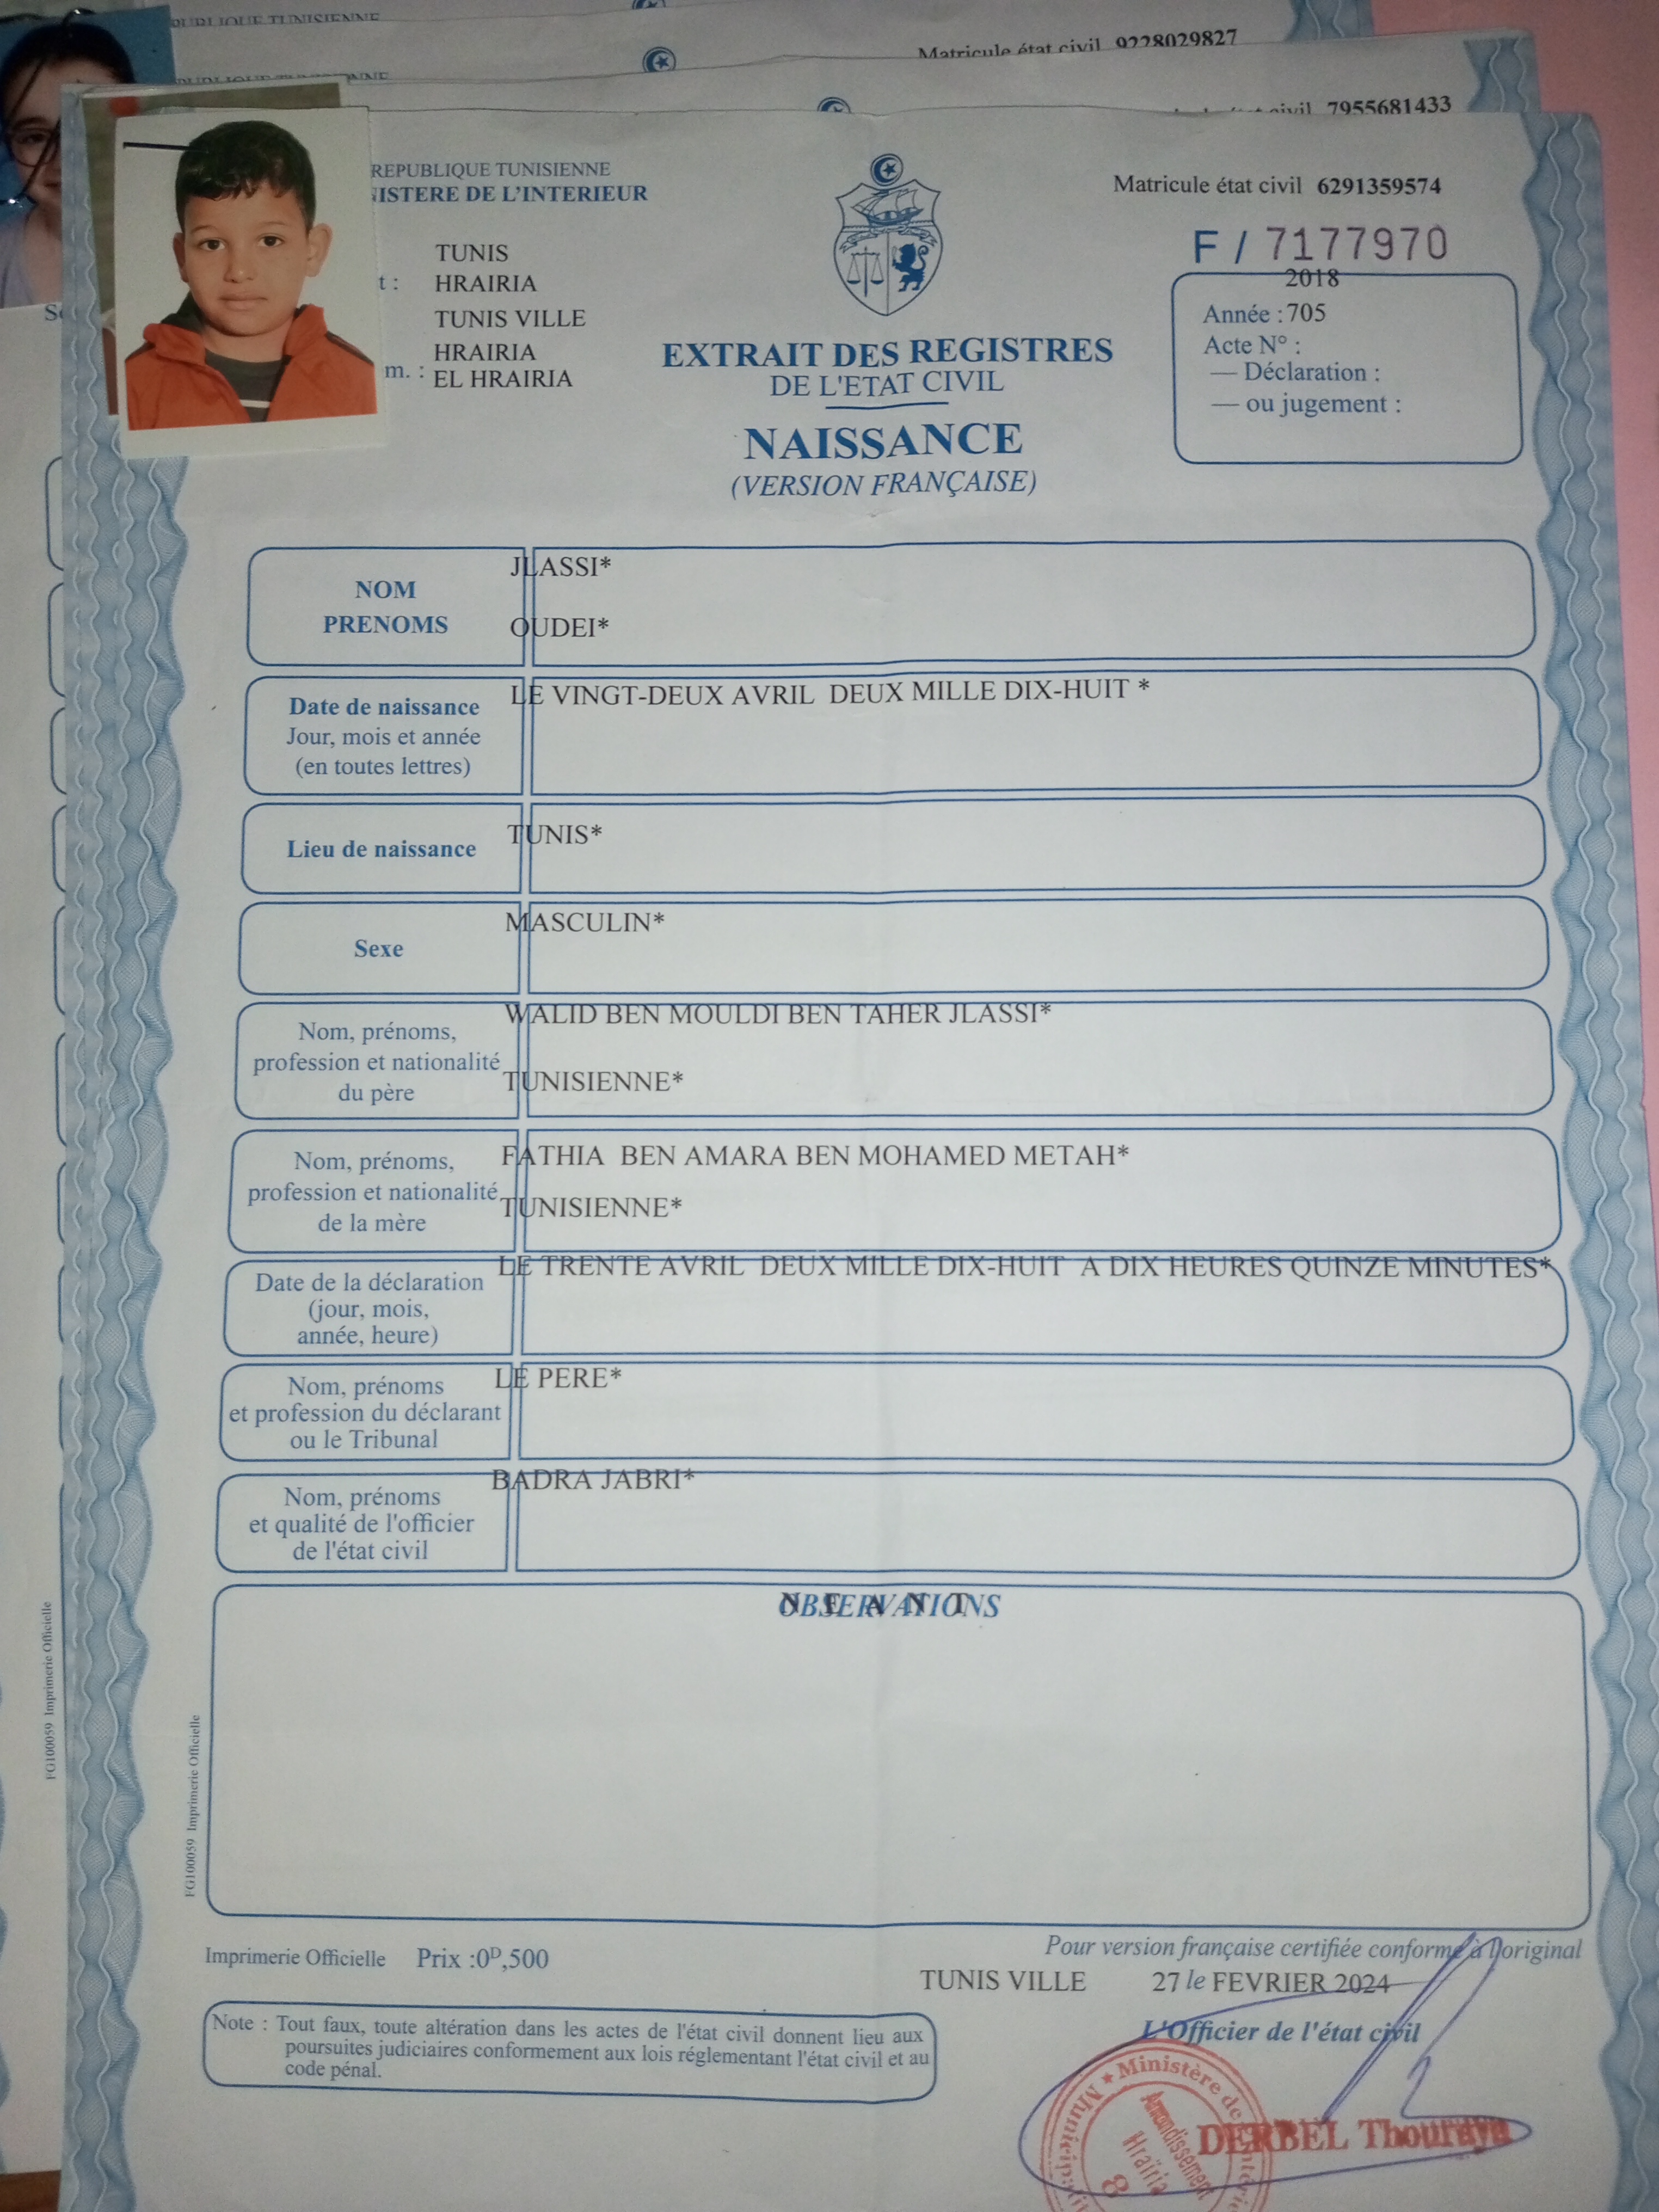 PUBLIQUE TUNISIENNE
Matricule état civil 9228029827
état civil 7955681433
REPUBLIQUE TUNISIENNE
ISTERE DE L'INTERIEUR
Matricule état civil 6291359574
F / 7177970
TUNIS
t : HRAIRIA
TUNIS VILLE
HRAIRIA
m. : EL HRAIRIA
2018
Année : 705
Acte N° :
— Déclaration :
— ou jugement :
EXTRAIT DES REGISTRES
DE L'ETAT CIVIL
NAISSANCE
(VERSION FRANÇAISE)
NOM
PRENOMS
JLASSI*
OUDEI*
Date de naissance
Jour, mois et année
(en toutes lettres)
LE VINGT-DEUX AVRIL DEUX MILLE DIX-HUIT *
Lieu de naissance
TUNIS*
Sexe
MASCULIN*
Nom, prénoms,
profession et nationalité
du père
WALID BEN MOULDI BEN TAHER JLASSI*
TUNISIENNE*
Nom, prénoms,
profession et nationalité
de la mère
FATHIA BEN AMARA BEN MOHAMED METAH*
TUNISIENNE*
Date de la déclaration
(jour, mois,
année, heure)
LE TRENTE AVRIL DEUX MILLE DIX-HUIT A DIX HEURES QUINZE MINUTES*
Nom, prénoms
et profession du déclarant
ou le Tribunal
LE PERE*
Nom, prénoms
et qualité de l'officier
de l'état civil
BADRA JABRI*
OBSERVATIONS
N E A N T
FG100059 Imprimerie Officielle
FG100059 Imprimerie Officielle
Imprimerie Officielle Prix :0ᴰ,500
Pour version française certifiée conforme à l'original
TUNIS VILLE 27 le FEVRIER 2024
L'Officier de l'état civil
Note : Tout faux, toute altération dans les actes de l'état civil donnent lieu aux
poursuites judiciaires conformement aux lois réglementant l'état civil et au
code pénal.
★ Ministère de
Arrondissement
Hraïria
8
DERBEL Thouraya